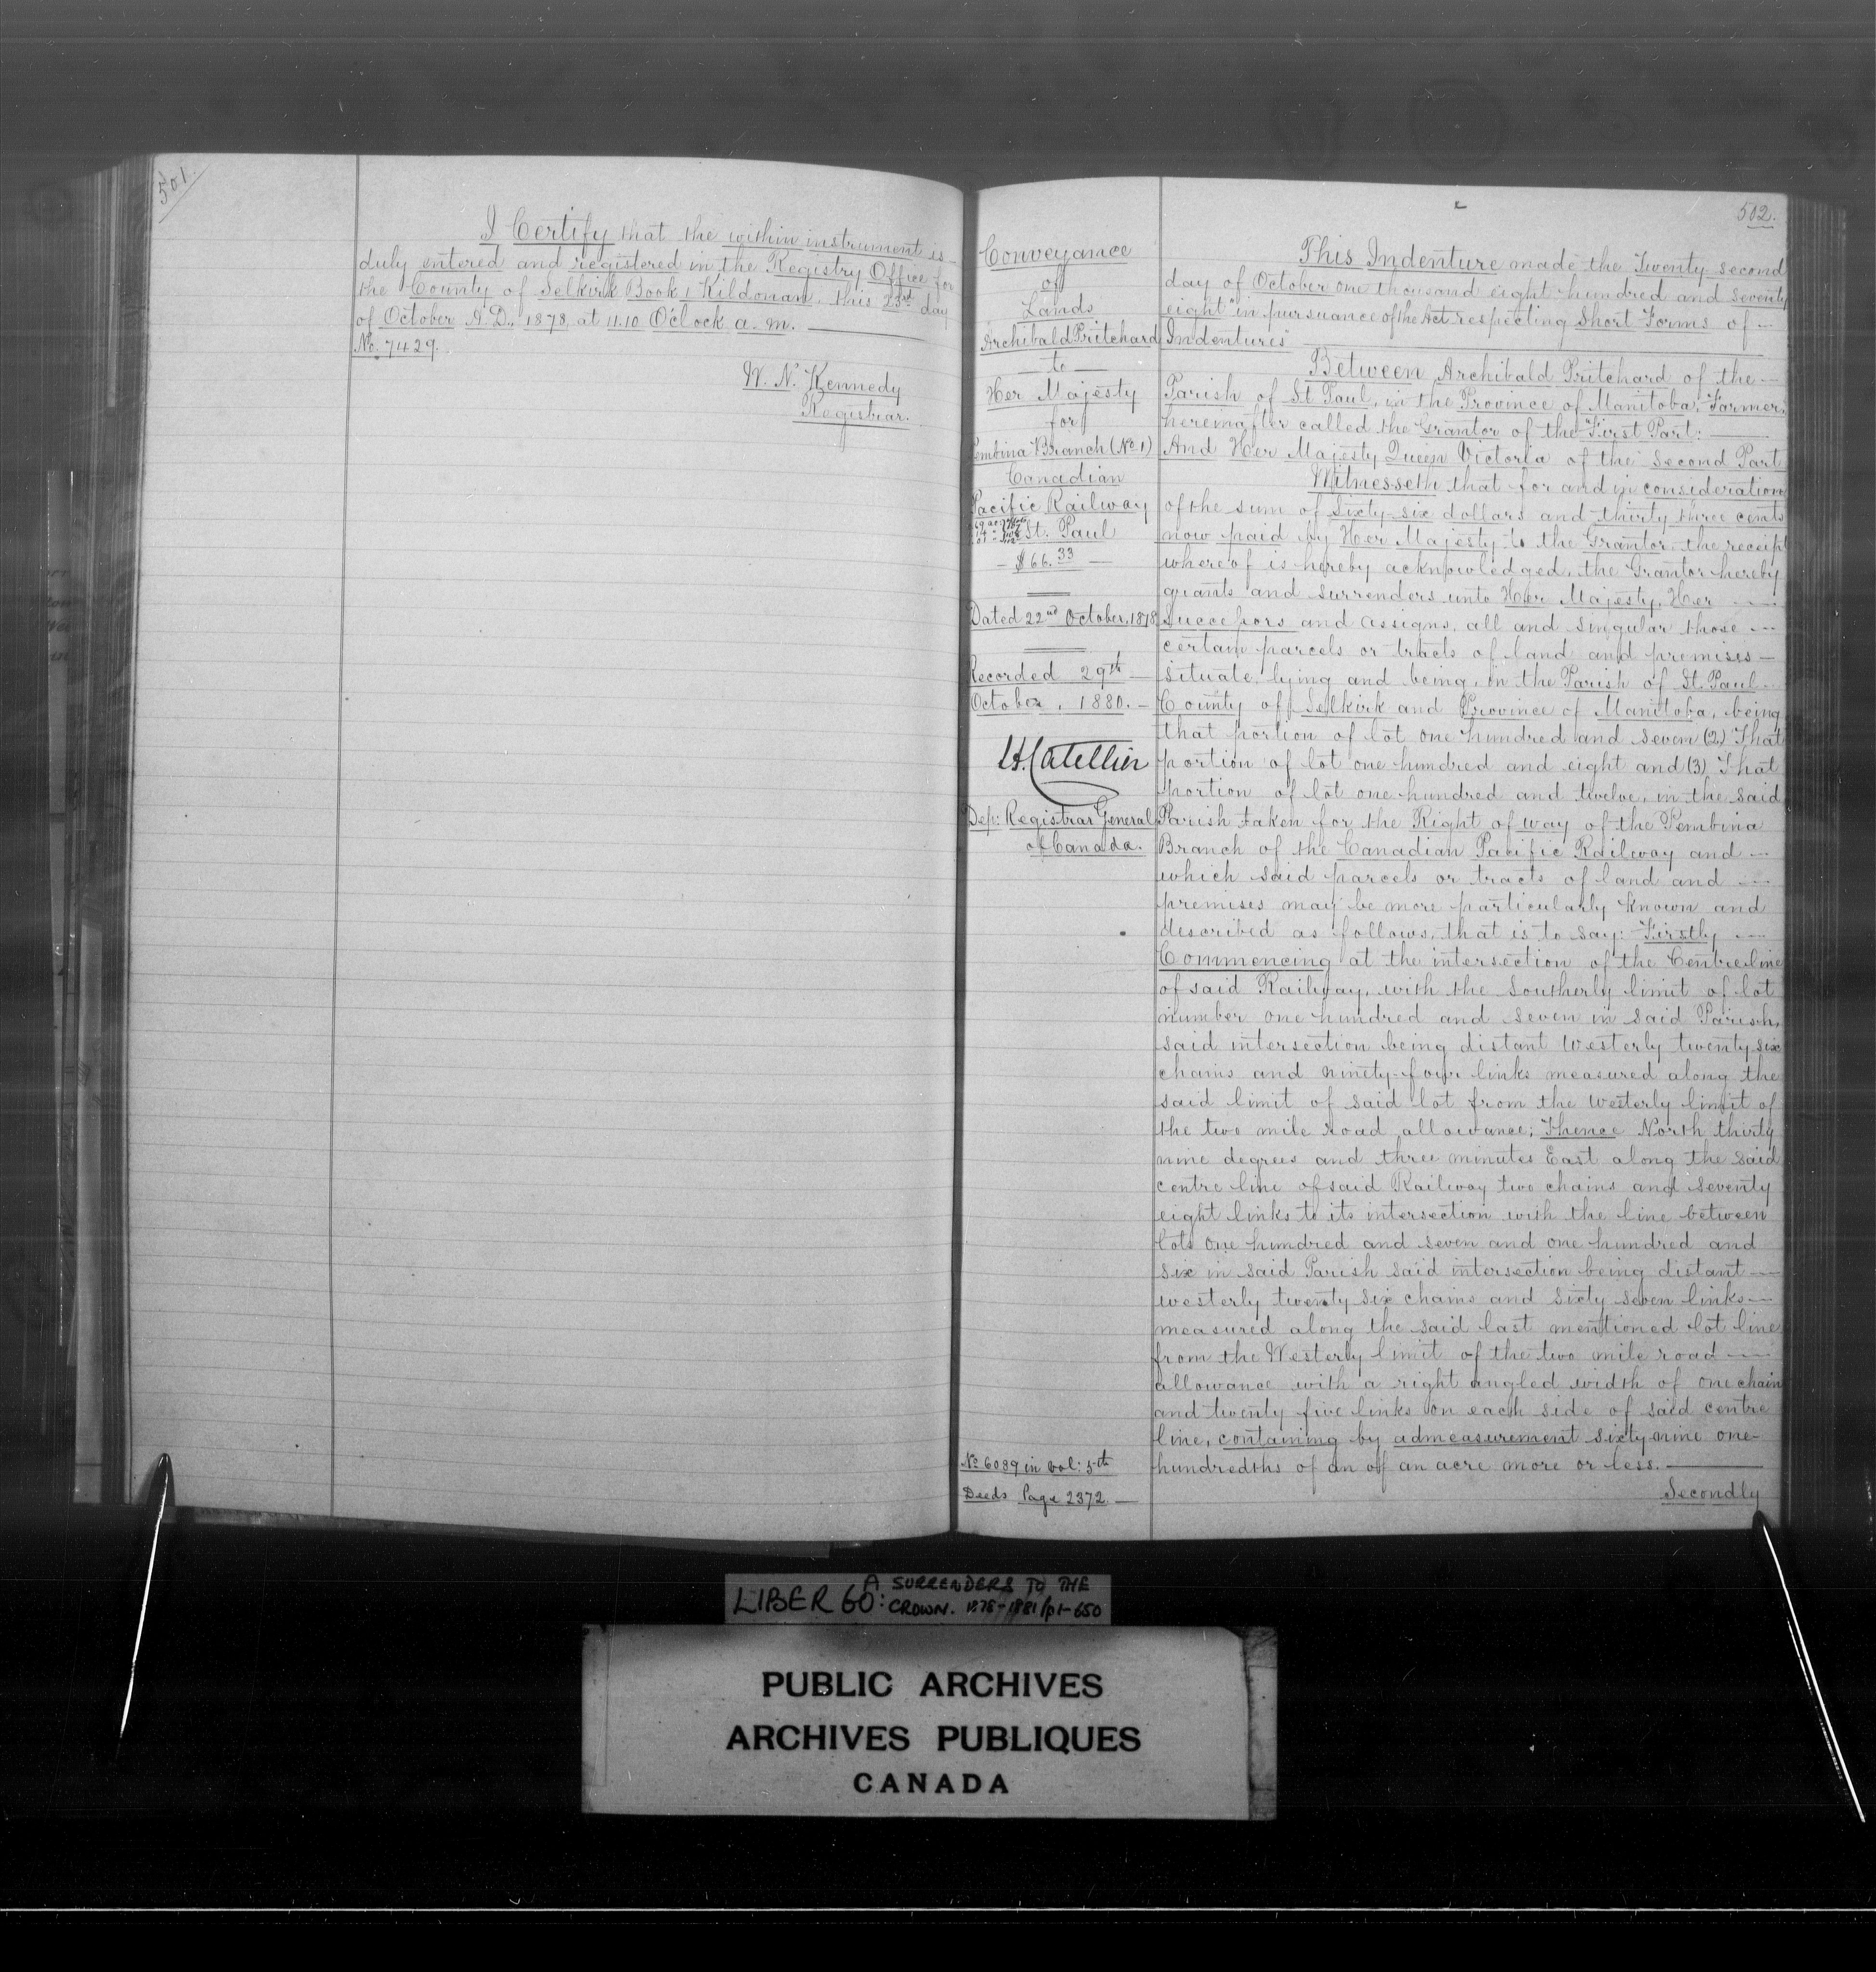 501.
I Certify that the within instrument is
duly entered and registered in the Registry Office for
the County of Selkirk Book 1 Kildonan, this 23rd day
of October A.D. 1878, at 11.10 O'clock a.m.
No. 7429.
W. N. Kennedy
Registrar.
502.
Conveyance
of
Lands
Archibald Pritchard
to
Her Majesty
for
Pembina Branch (No 1)
Canadian
Pacific Railway
St. Paul
$66.33
Dated 22nd October, 1878
Recorded 29th
October, 1880.
Catellier
Dep: Registrar General
of Canada.
No 6089 in vol: 5th
Deeds Page 2372.
This Indenture made the Twenty second
day of October one thousand eight hundred and seventy
eight in pursuance of the Act respecting Short Forms of
Indentures
Between Archibald Pritchard of the
Parish of St Paul, in the Province of Manitoba, Farmer,
hereinafter called the Grantor of the First Part:
And Her Majesty Queen Victoria of the Second Part
Witnesseth that for and in consideration
of the sum of Sixty-six dollars and thirty three cents
now paid by Her Majesty to the Grantor, the receipt
whereof is hereby acknowledged, the Grantor hereby
grants and surrenders unto Her Majesty, Her
Successors and assigns, all and singular those
certain parcels or tracts of land and premises
situate, lying and being, in the Parish of St. Paul
County of Selkirk and Province of Manitoba, being
that portion of lot one hundred and seven (2) That
portion of lot one hundred and eight and (3) That
portion of lot one hundred and twelve, in the said
Parish taken for the Right of way of the Pembina
Branch of the Canadian Pacific Railway and
which said parcels or tracts of land and
premises may be more particularly known and
described as follows, that is to say: Firstly
Commencing at the intersection of the Centre line
of said Railway, with the Southerly limit of lot
number one hundred and seven in said Parish,
said intersection being distant Westerly twenty six
chains and ninety-four links measured along the
said limit of said lot from the Westerly limit of
the two mile road allowance; Thence North thirty
nine degrees and three minutes East along the said
centre line of said Railway two chains and seventy
eight links to its intersection with the line between
lots one hundred and seven and one hundred and
six in said Parish said intersection being distant
westerly twenty six chains and sixty seven links
measured along the said last mentioned lot line
from the Westerly limit of the two mile road
allowance with a right angled width of one chain
and twenty five links on each side of said centre
line, containing by admeasurement sixty nine one-
hundredths of an of an acre more or less.
Secondly
LIBER 60: A SURRENDERS TO THE
CROWN. 1878-1881/p1-650
PUBLIC ARCHIVES
ARCHIVES PUBLIQUES
CANADA